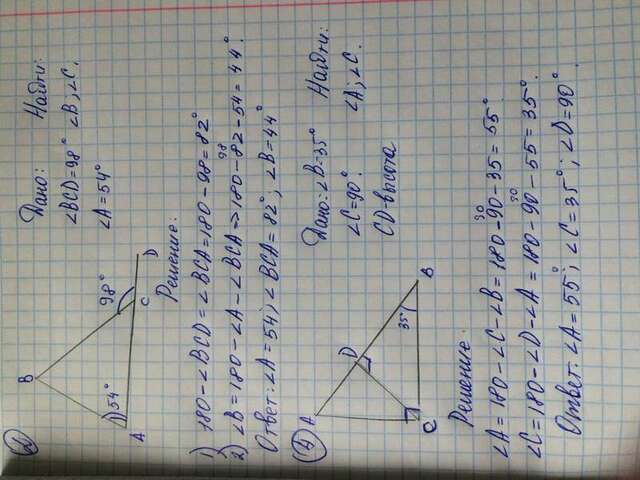 2
B
54°
98°
A
C
D
Дано:
Найти:
∠BCD=98°
∠B; ∠C.
∠A=54°
Решение:
1) 180-∠BCD=∠BCA=180-98=82°
2) ∠B=180-∠A-∠BCA => 180-82-54=44°.
98
Ответ: ∠A=54; ∠BCA=82°; ∠B=44°
A
D
35
C
B
Дано: ∠B=35°
Найти:
∠C=90°.
∠A; ∠C.
CD-высота
Решение.
∠A=180-∠C-∠B=180-90-35=55°.
90
∠C=180-∠D-∠A=180-90-55=35°.
90
Ответ. ∠A=55°; ∠C=35°; ∠D=90°.